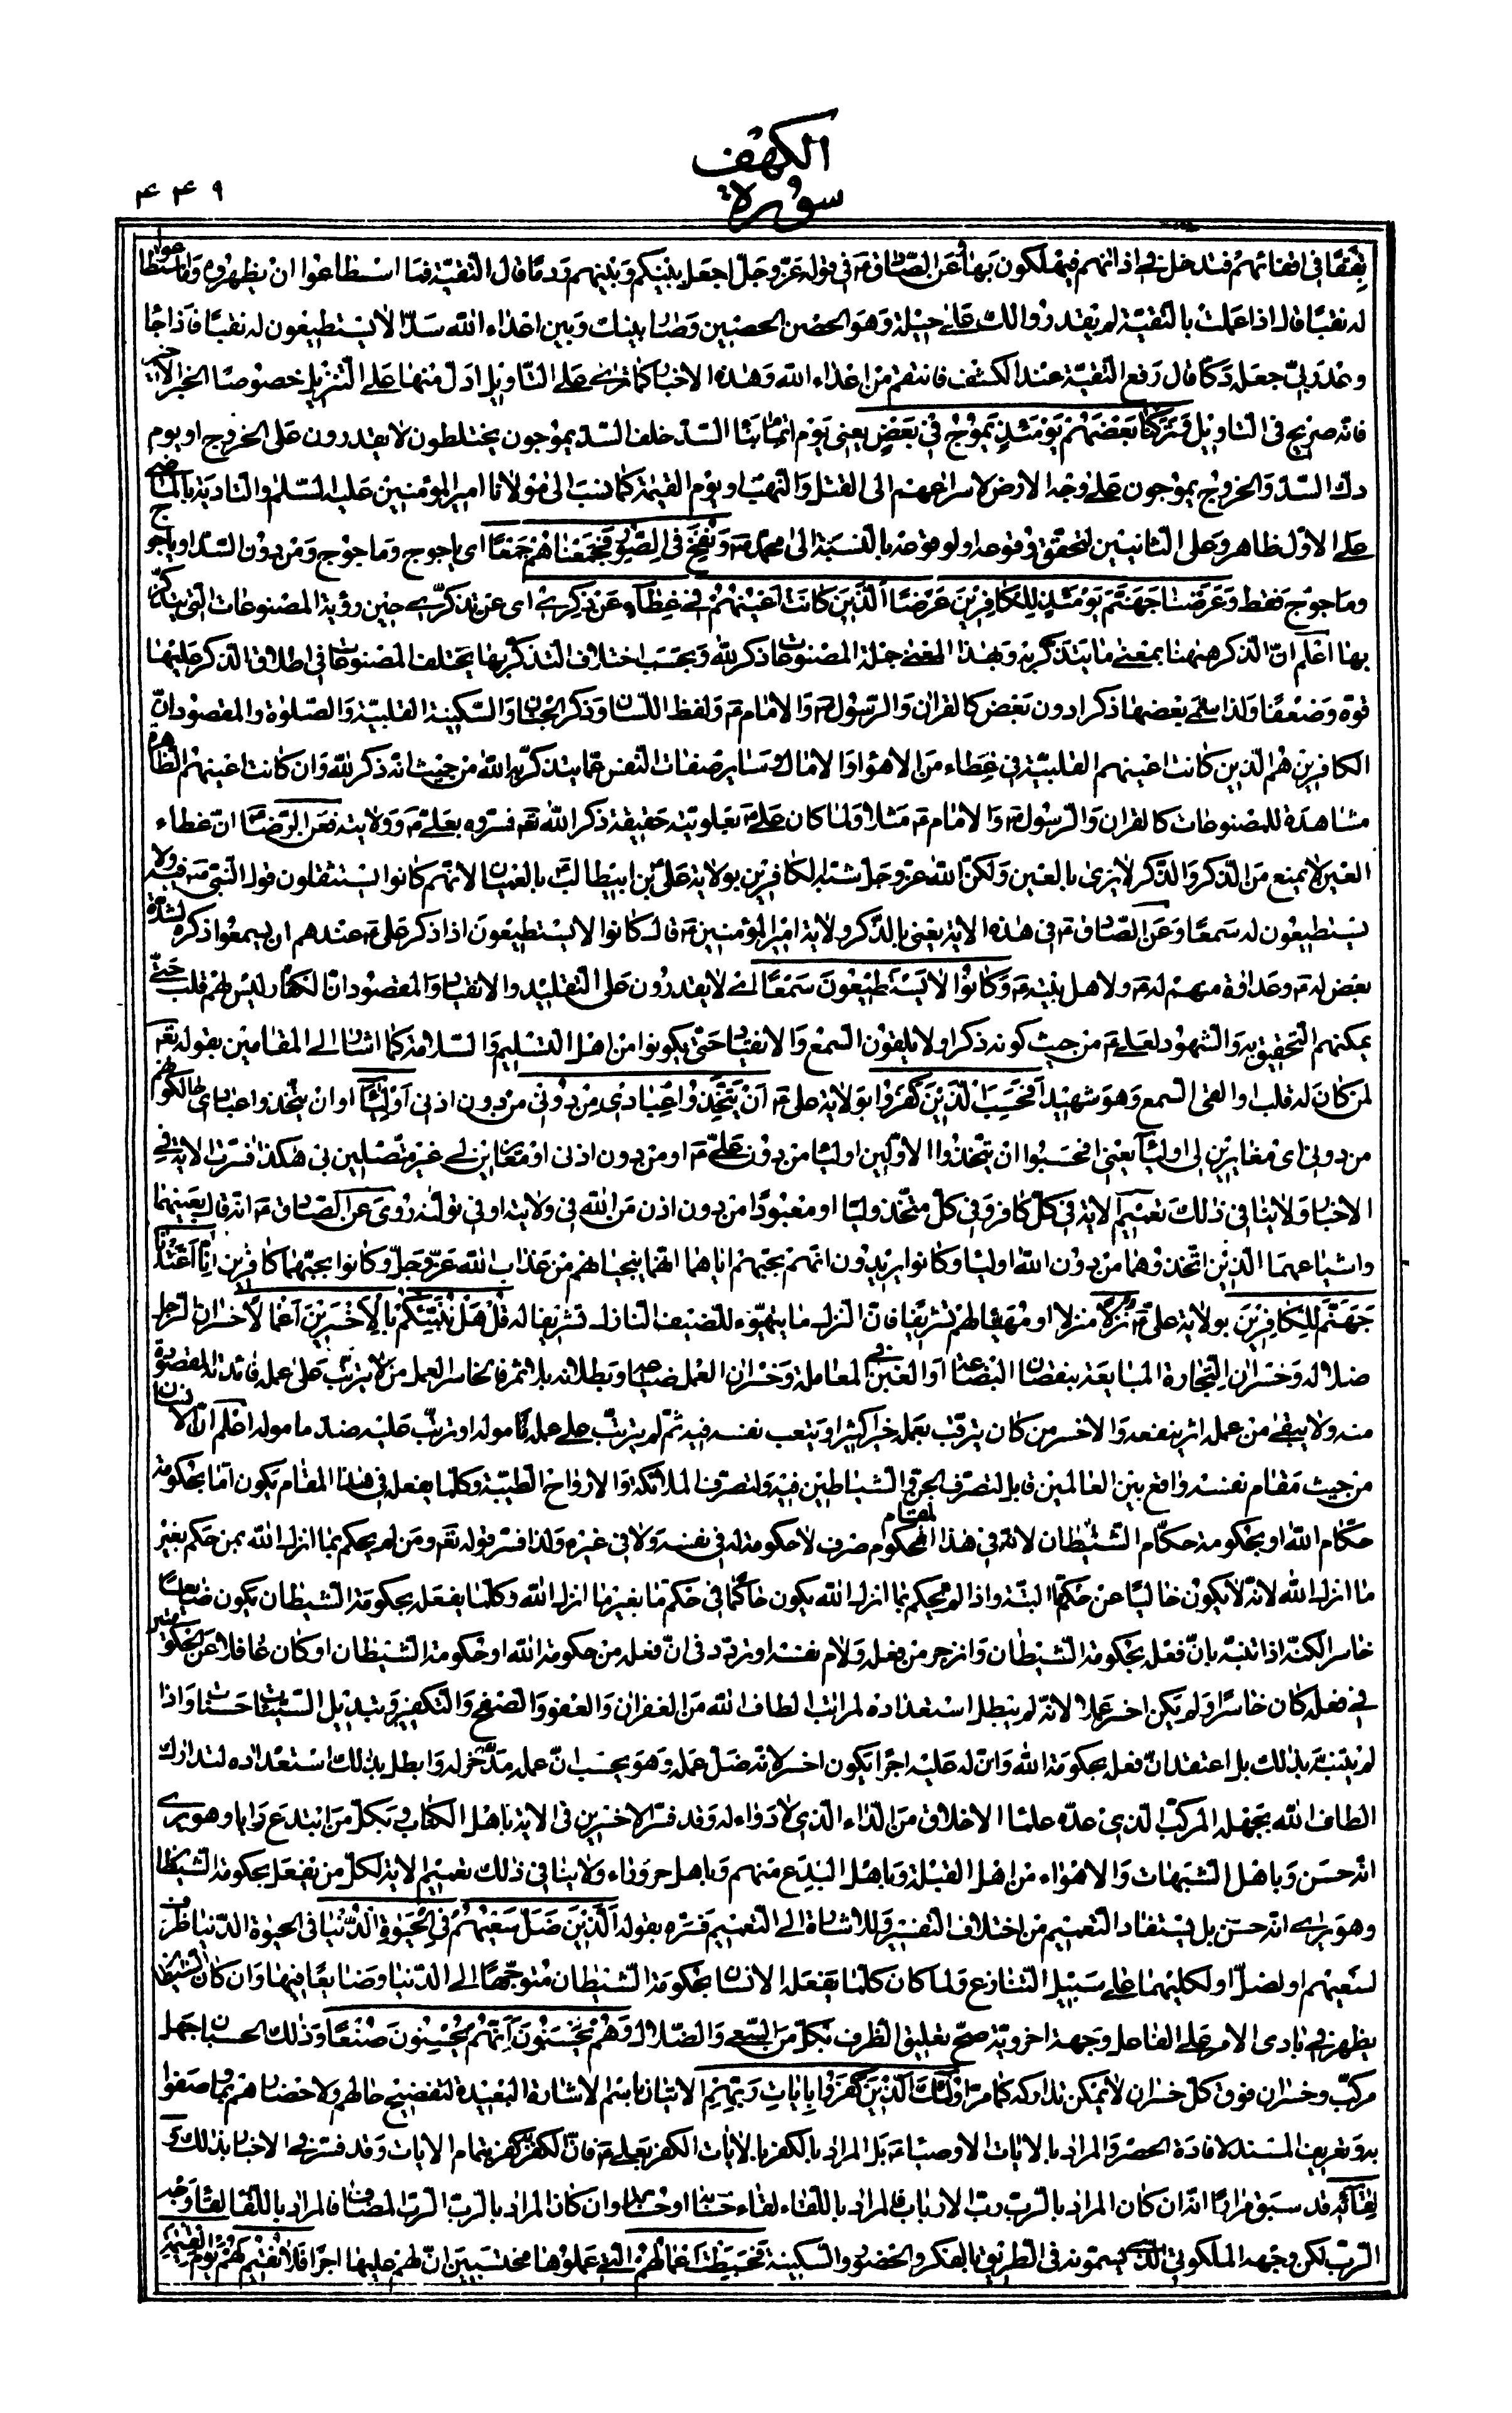 الكهف
سورة
٤٤٩
فى اقفائهم فتدخل فى اذانهم فيهلكون بها وعن الصّادق ع فى قوله عزّ وجلّ اجعل بينكم وبينهم ردمًا قال التّقيّة فما اسطاعوا ان يظهروه وما استطاعوا
له نقبًا قال اذا عملت بالتّقيّة لم يقدروا لك على حيلة وهو الحصن الحصين وصار بينك وبين اعداء الله سدّا لا يستطيعون له نقبًا فاذا جاء
وعد ربّى جعله دكّا قال رفع التّقيّة عند الكشف فانتقم من اعداء الله وهذه الاخبار كما ترى على التّأويل ادلّ منها على التّنزيل خصوصًا الخبر الاخير
فانّه صريح فى التأويل وَتَرَكْنا بَعْضَهُمْ يَوْمَئِذٍ يَمُوجُ فى بَعْضٍ يعنى يوم اتمّنا بناء السّدّ خلف السّدّ يموجون يختلطون لا يقدرون على الخروج او يوم
دكّ السّدّ والخروج يموجون على وجه الارض لاسراعهم الى القتل والنّهب او يوم القيمة كما نسب الى مولانا امير المؤمنين عليه السّلام والتادية بالماضى
على الاوّل ظاهر وعلى الثانيين لتحقّق وقوعه او لوقوعه بالنسبة الى محمّد ص وَنُفِخَ فى الصُّورِ فَجَمَعْناهُمْ جَمْعًا اى ياجوج وماجوج ومن دون السّدّ او ياجوج
وماجوج فقط وَعَرَضْنا جَهَنَّمَ يَوْمَئِذٍ لِلْكافِرينَ عَرْضًا اَلَّذينَ كانَتْ اَعْيُنُهُمْ فى غِطآءٍ عَنْ ذِكْرى اى عن تذكّرى حين رؤية المصنوعات الّتى يتذكّر
بها اعلم انّ الذّكر ههنا بمعنى ما يتذكّر به وبهذا المعنى جملة المصنوعات ذكر لله وبحسب اختلاف التّذكّر بها يختلف المصنوعات فى اطلاق الذّكر عليها
قوّة وضعفًا ولذا سمّى بعضها ذكرا دون بعض كالقران والرّسول ص والامام ع ولفظ اللّسان وذكر الجنان والسّكينة القلبيّة والصّلوة والمقصود انّ
الكافرين هم الّذين كانت اعينهم القلبيّة فى غطاء من الاهواء والامال وساير صفات النّفس عمّا يتذكّر به الله من حيث انّه ذكر لله وان كانت اعينهم الظّاهرة
مشاهدة للمصنوعات كالقران والرّسول ص والامام ع مثلا ولمّا كان علىّ ع بعلويّته حقيقة ذكر الله تع فسّروه بعلىّ ع وولايته فعن الرّضا انّ غطاء
العين لا يمنع من الذّكر والذّكر لا يرى بالعين ولكنّ الله عزّ وجلّ شبّه الكافرين بولاية علىّ بن ابيطالب بالعميان لانّهم كانوا يستثقلون قول النّبى ص فيه ولا
يستطيعون له سمعًا وعن الصّادق ع فى هذه الاية يعنى بالذّكر ولاية امير المؤمنين ع قال كانوا لا يستطيعون اذا ذكر علىّ ع عندهم ان يسمعوا ذكره لشدّة
بغض له ع وعداوة منهم له ع ولاهل بيته ع وَكانُوا لا يَسْتَطيعُونَ سَمْعًا اى لا يقدرون على التّقليد والانقياد والمقصود انّ الكفّار ليس لهم قلب حتّى
يمكنهم التّحقيق به والشّهود لعلىّ ع من حيث كونه ذكرا ولا يلقون السّمع والانقياد حتّى يكونوا من اهل التّسليم والسّلامة كما اشار الى المقامين بقوله تع
لمن كان له قلب او القى السّمع وهو شهيد اَفَحَسِبَ الَّذينَ كَفَرُوا بولاية علىّ ع اَنْ يَتَّخِذُوا عِبادى مِنْ دُونى من دون اذنى اَوْلِيآءَ او ان يتّخذوا عبادى حالكونهم
من دونى اى مغايرين لى اولياء يعنى افحسبوا ان يتّخذوا الاوّلين اولياء من دون علىّ ع او من دون اذنى او مغايرين لى غير متّصلين بى هكذا فسّرت الاية فى
الاخبار ولا ينافى ذلك تعميم الاية فى كلّ كافر وفى كلّ متّخذ وليّا او معبودًا من دون اذن من الله فى ولايته او فى تولّيه روى عن الصّادق ع انّه قال يعنيهما
واشياعهما الّذين اتّخذوهما من دون الله اولياء وكانوا يريدون انّهم بحبّهم اياهما انّهما ينجيانهم من عذاب الله عزّ وجلّ وكانوا بحبّهما كافرين اِنّا اَعْتَدْنا
جَهَنَّمَ لِلْكافِرينَ بولاية علىّ ع نُزُلًا منزلا او مهيّئا لهم تشريفًا فانّ النزل ما يتهيّوء للضيف النازل تشريفا له قُلْ هَلْ نُنَبِّئُكُمْ بِالْاَخْسَرينَ اَعْمالًا خسران الرّجل
ضلاله وخسران التّجارة المبايعة بنقصان البضاعة او الغبن فى المعاملة وخسران العمل ضياعه وبطلانه بلا ثمر فالخاسر العمل من لا يترتّب على عمله فائدته المقصودة
منه ولا يبقى من عمله اثر ينفعه والاخسر من كان يترقّب بعمله خيرا كثيرا ويتعب نفسه فيه ثمّ لم يترتّب على عمله مأموله او ترتّب عليه ضدّ مأموله اعلم انّ الانسان
من حيث مقام نفسه واقع بين العالمين قابل لتصرّف الجنّ والشياطين فيه ولتصرّف الملائكة والارواح الطّيّبة وكلّما يفعله فى هذا المقام يكون امّا بحكومة
حكّام الله او بحكومة حكّام الشّيطان لانّه فى هذا المقام محكوم صرف لا حكومة له فى نفسه ولا فى غيره ولذا فسّر قوله تع ومن لم يحكم بما انزل الله بمن حكم بغير
ما انزل الله لانّه لا يكون خاليًا عن حكم ما البتّة واذا لم يحكم بما انزل الله يكون حاكمًا فى حكم ما بغير ما انزل الله وكلّما يفعله بحكومة الشّيطان يكون ضايعًا
خاسرا لكنّه اذا تنبّه بانّ فعله بحكومة الشّيطان وانزجر من فعله ولام نفسه او تردّد فى انّ فعله من حكومة الله او حكومة الشّيطان او كان غافلا عن الحكومتين
فى فعله كان خاسرًا ولم يكن اخسر عملا لانّه لم يبطل استعداده لمراتب الطاف الله من الغفران والعفو والصّفح والتّكفير وتبديل السّيّئات حسنات واذا
لم يتنبّه بذلك بل اعتقد انّ فعله بحكومة الله وانّ له عليه اجرًا يكون اخسر لانّه ضلّ عمله وهو يحسب انّ عمله مدّخر له وابطل بذلك استعداده لتدارك
الطاف الله بجهله المركّب الّذى عدّه علماء الاخلاق من الدّاء الّذى لا دواء له وقد فسّر الاخسرين فى الاية باهل الكتاب وبكلّ من ابتدع رأيا وهو يرى
انّه حسن وباهل الشّبهات والاهواء من اهل القبلة وباهل البدع منهم وباهل حروراء ولا ينافى ذلك تعميم الاية لكلّ من يفعل بحكومة الشيطان
وهو يرى انّه حسن بل يستفاد التّعميم من اختلاف التّفسير وللاشارة الى التّعميم فسّره بقوله اَلَّذينَ ضَلَّ سَعْيُهُمْ فِى الْحَيوةِ الدُّنْيا فى الحيوة الدّنيا ظرف
لسعيهم او لضلّ او لكليهما على سبيل التّنازع ولمّا كان كلّما يفعله الانسان بحكومة الشّيطان متوجّهًا الى الدّنيا وضايعًا فيها وان كان الشيطان
يظهر فى بادى الامر على الفاعل وجهة اخرويّة صحّ تعليق الظّرف بكلّ من السّعى والضّلال وَهُمْ يَحْسَبُونَ اَنَّهُمْ يُحْسِنُونَ صُنْعًا وذلك الحسبان جهل
مركّب وخسران فوق كلّ خسران لا يمكن تداركه كما مرّ اُولئِكَ الَّذينَ كَفَرُوا بِاياتِ رَبِّهِمْ الاتيان باسم الاشارة البعيدة لتفضيح حالهم ولاحضارهم بما وصفوا
به وتعريف المسند لافادة الحصر والمراد بالايات الاوصياء ع بل المراد بالكفر بالايات الكفر بعلىّ ع فانّ الكفر به كفر بتمام الايات وقد فسّر فى الاخبار بذلك وَ
لِقآئِهِ قد سبق مرارًا انّه ان كان المراد بالرّب ربّ الارباب فالمراد باللّقاء لقاء حسابه او حسابه وان كان المراد بالرّبّ الرّبّ المضاف فالمراد باللّقاء لقاء وجه
الرّبّ لكن وجهه الملكوتى الّذى يسمّونه فى الطّريق بالفكر والحضور والسّكينة فَحَبِطَتْ اَعْمالُهُمْ الّتى عملوها محتسبين انّ لهم عليها اجرًا فَلا نُقيمُ لَهُمْ يَوْمَ الْقِيمَةِ